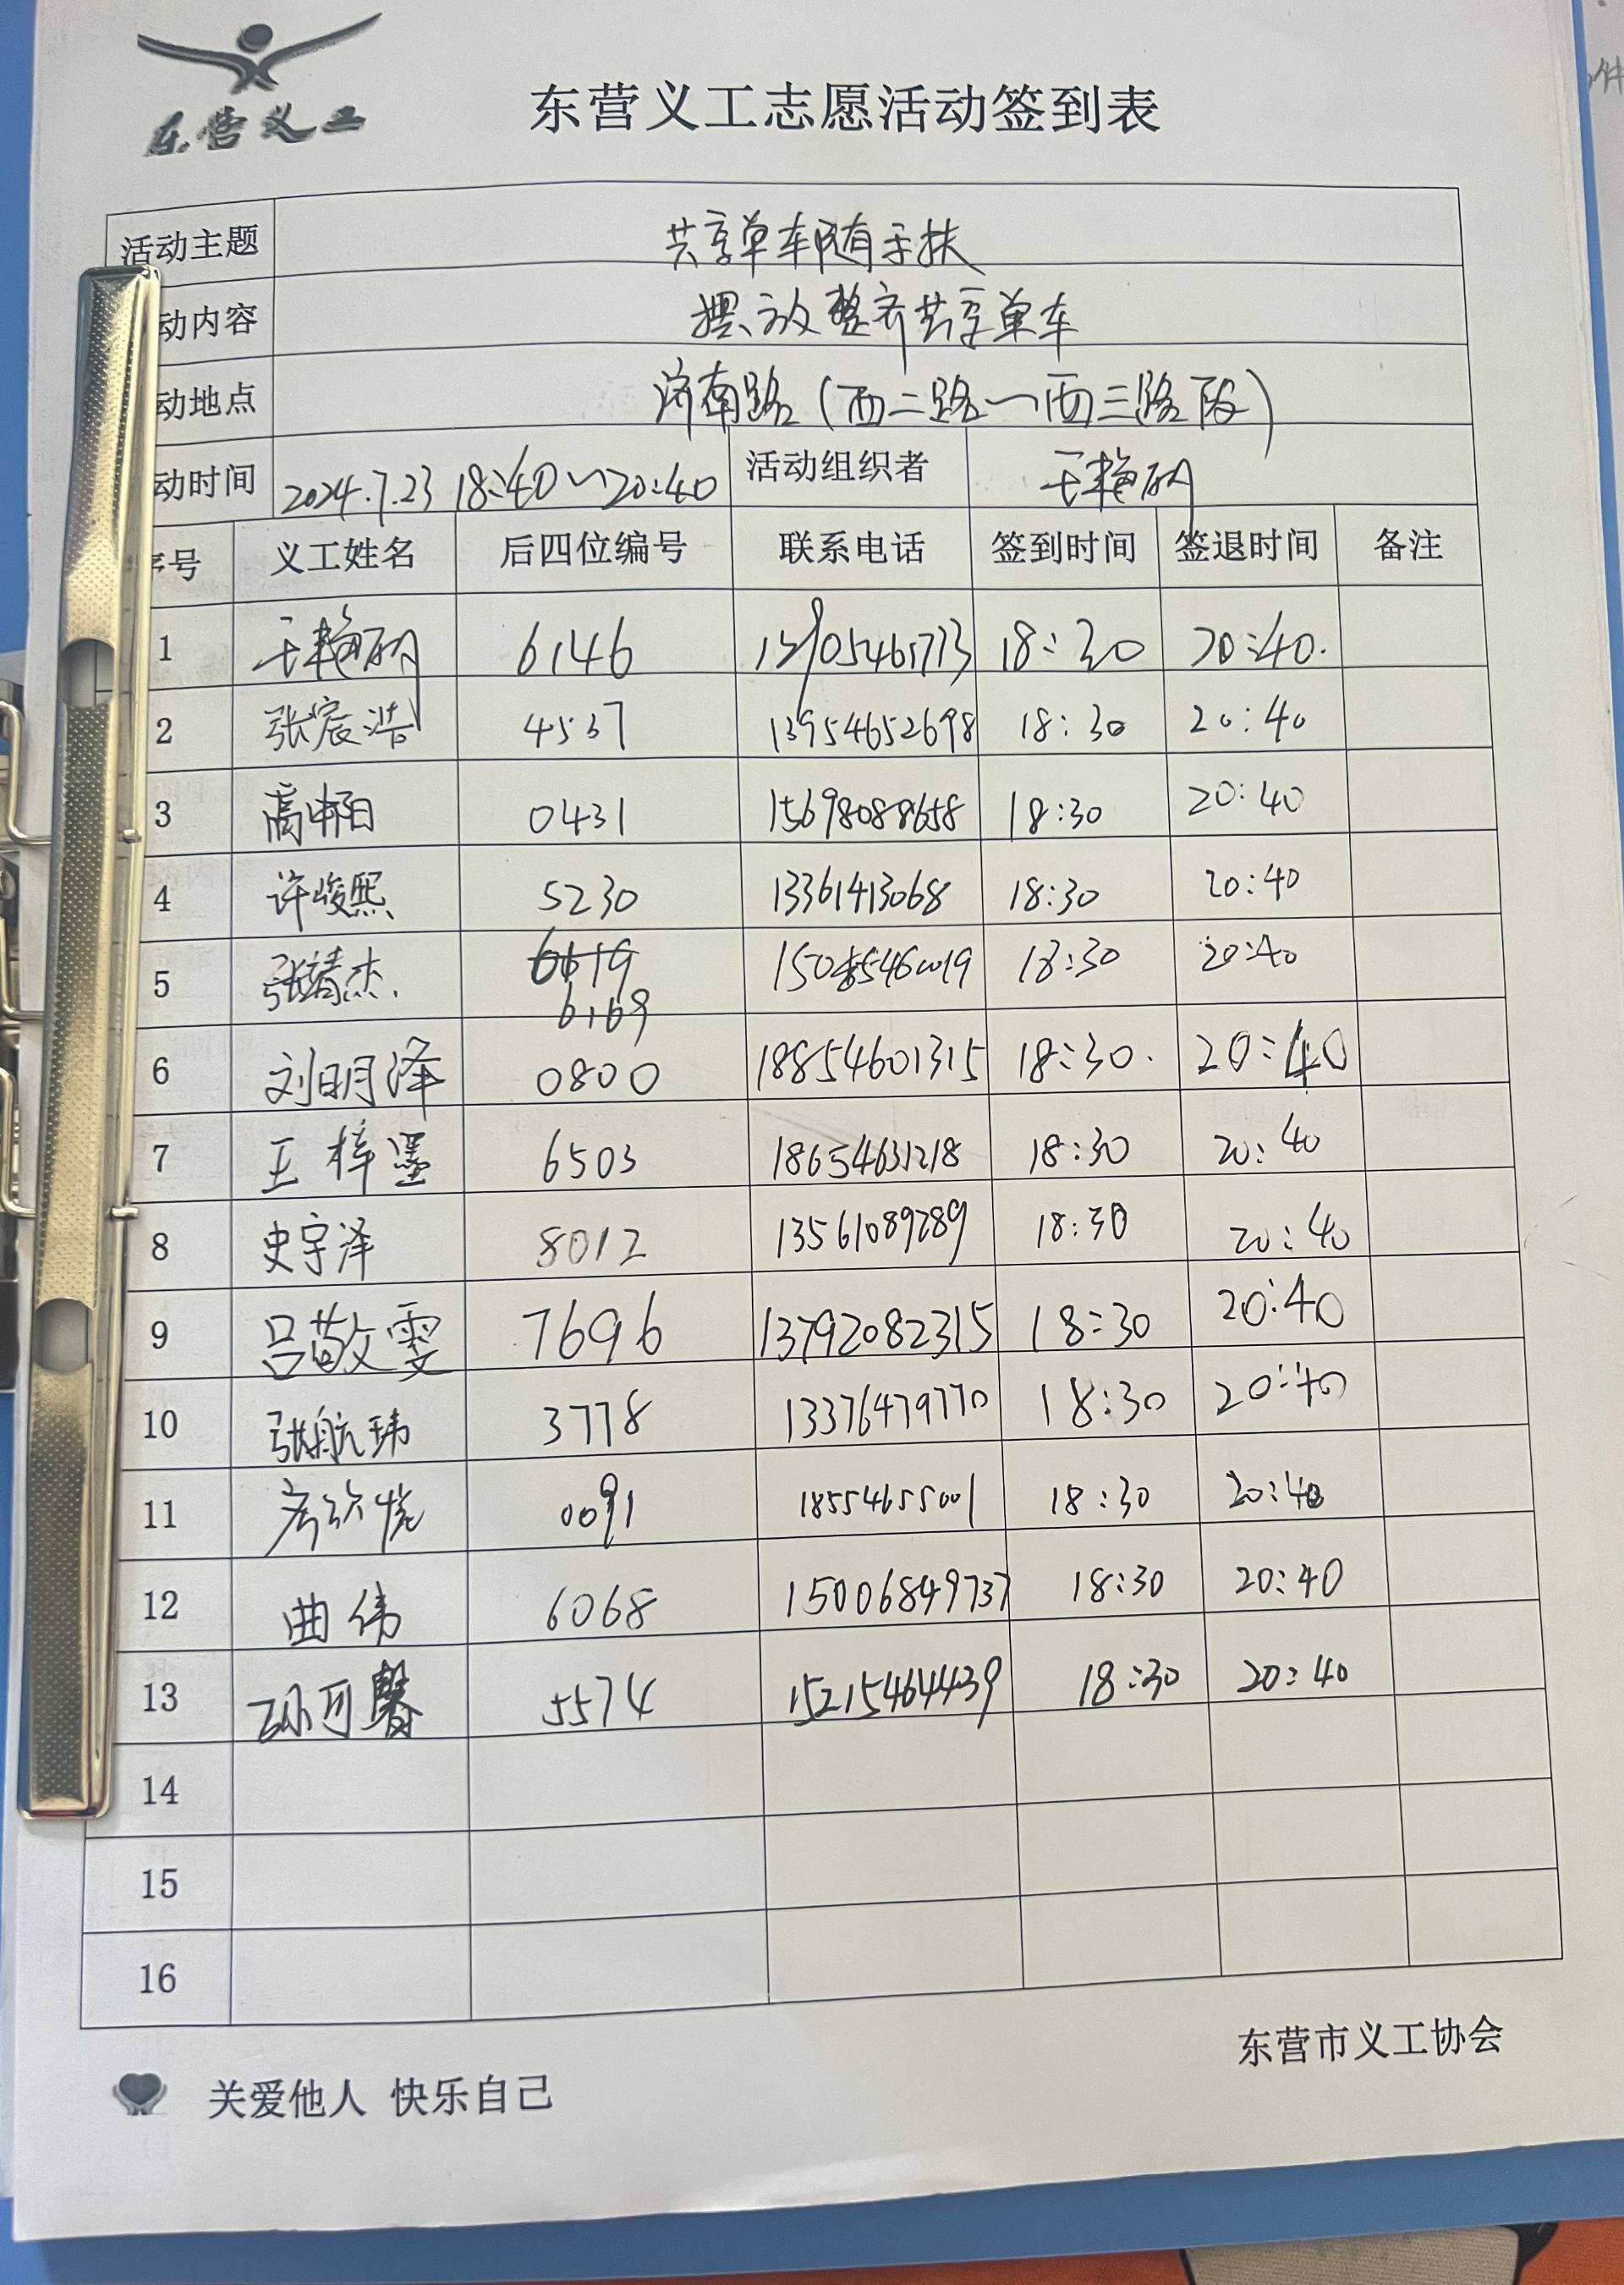 东营义工
东营义工志愿活动签到表
活动主题 共享单车随手扶
动内容 摆放整齐共享单车
动地点 济南路(西二路~西三路段)
动时间 2024.7.23 18:40~20:40 活动组织者
序号 义工姓名 后四位编号 联系电话 签到时间 签退时间 备注
1 6146 18:30 20:40.
2 张宸浩 4537 13954652698 18:30 20:40
3 0431 15698088658 18:30 20:40
4 许峻熙 5230 13361413068 18:30 20:40
5 张靖杰 6169 18:30 20:40
6 刘明泽 0800 18854601315 18:30. 20:40
7 王梓墨 6503 18654631218 18:30 20:40
8 史宇泽 8012 13561089289 18:30 20:40
9 吕敬雯 7696 13792082315 18:30 20:40
10 张航玮 3778 13376479770 18:30 20:40
11 0091 18554655001 18:30 20:40
12 曲伟 6068 15006849737 18:30 20:40
13 孙可馨 5574 15215464439 18:30 20:40
14
15
16
东营市义工协会
关爱他人 快乐自己